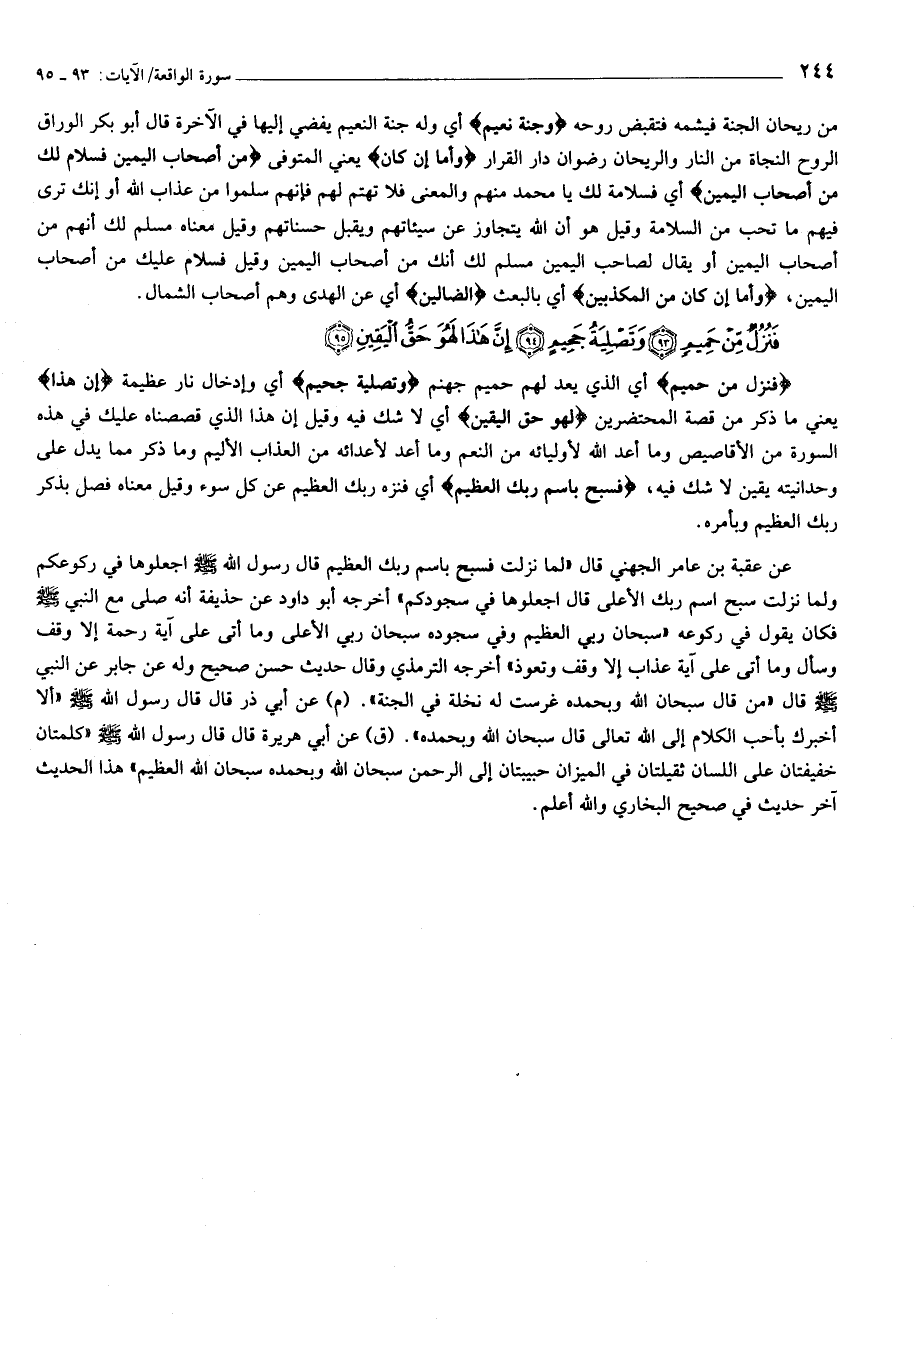 ٢٤٤ سورة الواقعة/ الآيات: ٩٣ ـ ٩٥
من ريحان الجنة فيشمه فتقبض روحه ﴿وجنة نعيم﴾ أي وله جنة النعيم يفضي إليها في الآخرة قال أبو بكر الوراق
الروح النجاة من النار والريحان رضوان دار القرار ﴿وأما إن كان﴾ يعني المتوفى ﴿من أصحاب اليمين فسلام لك
من أصحاب اليمين﴾ أي فسلامة لك يا محمد منهم والمعنى فلا تهتم لهم فإنهم سلموا من عذاب الله أو إنك ترى
فيهم ما تحب من السلامة وقيل هو أن الله يتجاوز عن سيئاتهم ويقبل حسناتهم وقيل معناه مسلم لك أنهم من
أصحاب اليمين أو يقال لصاحب اليمين مسلم لك أنك من أصحاب اليمين وقيل فسلام عليك من أصحاب
اليمين، ﴿وأما إن كان من المكذبين﴾ أي بالبعث ﴿الضالين﴾ أي عن الهدى وهم أصحاب الشمال.
فَنُزُلٌ مِّنْ حَمِيمٍ ﴿٩٣﴾ وَتَصْلِيَةُ جَحِيمٍ ﴿٩٤﴾ إِنَّ هَٰذَا لَهُوَ حَقُّ ٱلْيَقِينِ ﴿٩٥﴾
﴿فنزل من حميم﴾ أي الذي يعد لهم حميم جهنم ﴿وتصلية جحيم﴾ أي وإدخال نار عظيمة ﴿إن هذا﴾
يعني ما ذكر من قصة المحتضرين ﴿لهو حق اليقين﴾ أي لا شك فيه وقيل إن هذا الذي قصصناه عليك في هذه
السورة من الأقاصيص وما أعد الله لأوليائه من النعم وما أعد لأعدائه من العذاب الأليم وما ذكر مما يدل على
وحدانيته يقين لا شك فيه، ﴿فسبح باسم ربك العظيم﴾ أي فنزه ربك العظيم عن كل سوء وقيل معناه فصل بذكر
ربك العظيم وبأمره.
عن عقبة بن عامر الجهني قال «لما نزلت فسبح باسم ربك العظيم قال رسول الله ﷺ اجعلوها في ركوعكم
ولما نزلت سبح اسم ربك الأعلى قال اجعلوها في سجودكم» أخرجه أبو داود عن حذيفة أنه صلى مع النبي ﷺ
فكان يقول في ركوعه «سبحان ربي العظيم وفي سجوده سبحان ربي الأعلى وما أتى على آية رحمة إلا وقف
وسأل وما أتى على آية عذاب إلا وقف وتعوذ» أخرجه الترمذي وقال حديث حسن صحيح وله عن جابر عن النبي
ﷺ قال «من قال سبحان الله وبحمده غرست له نخلة في الجنة». (م) عن أبي ذر قال قال رسول الله ﷺ «ألا
أخبرك بأحب الكلام إلى الله تعالى قال سبحان الله وبحمده». (ق) عن أبي هريرة قال قال رسول الله ﷺ «كلمتان
خفيفتان على اللسان ثقيلتان في الميزان حبيبتان إلى الرحمن سبحان الله وبحمده سبحان الله العظيم» هذا الحديث
آخر حديث في صحيح البخاري والله أعلم.